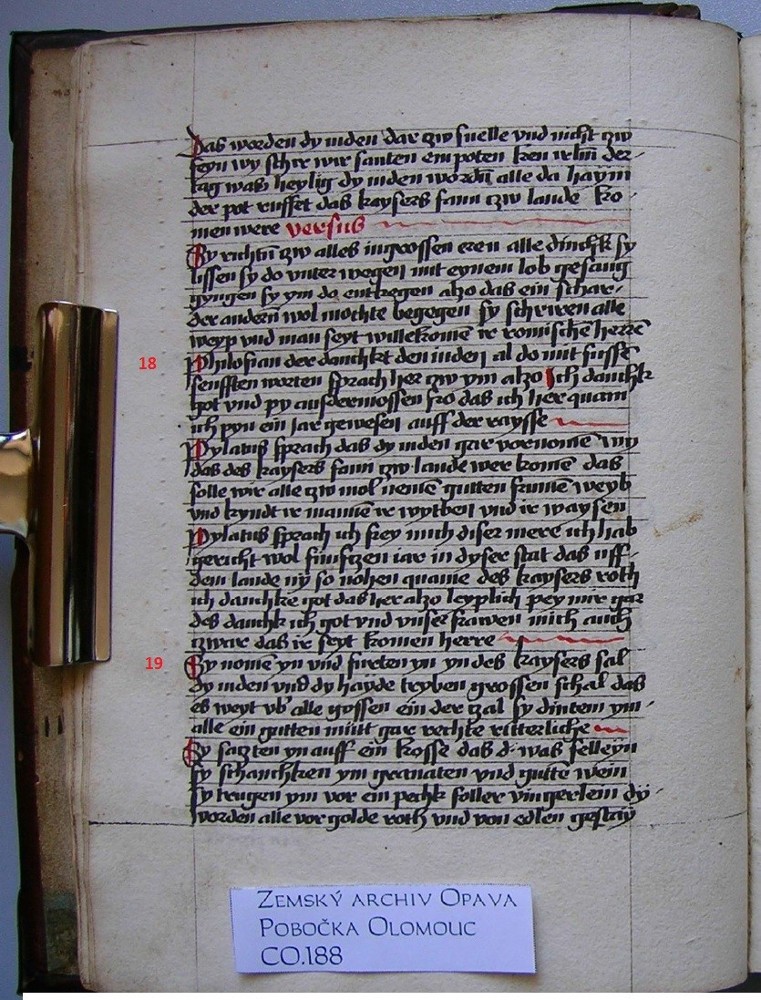 Das worden dy inden dar zw snelle vnd nicht zw
seyn wy schir wir santen ein poten ken der
tag was heylig dy inden alle da haym
der pot ruffet das kaysers sann zw lande ko
men were versus
Sy richtñ zw alles ingrossen eren alle dinchk sy
lissen sy do vnter wegen mit eynem lob gesang
gyngen sy ym do entkegen alzo das ein schar
der andern wol mochte begegen sy schriren alle
weyp vnd man seyt willekomē ir romische herrē
18
Philosian der danchkt den inden al do mit sussē
senfften worten sprach her zw ym alzo Ich danchk
got vnd py ausdermossen fro das ich her quam
ich pyn ein iar gewesen auff der raysse
Pylatus sprach das dy inden gar vornomē
das des kaysers sann zw lande wer komē das
solle wir alle zw mol nemē gutten frumē weyb
vnd kyndt ir manne ir wytben vnd ir waysen
Pylatus sprach ich frey mich diser mere ich hab
gericht wol funfczen iar in dyser stat das uff
dem lande ny so nohen quame des kaysers roth
ich danchke got das her alzo leyplich pey mir gar
des danchk ich got vnd vnser frawen mich auch
zwar das ir seyt komen herre
19
Sy nomē yn vnd fureten yn yn des kaysers sal
dy inden vnd dy hayde tryben grossen schal das
es weyt vb' alle gossen ein der zal sy dintem ym
alle ein gutten mutt gar rechte ritterliche
Sy saczten yn auff ein krosse das d. was felleyn
sy schanchken ym granaten vnd gutte wein
sy trugen ym vor ein pechk foller vingerlein dy
worden alle vor golde roth vnd von edlen gestay
Zemský archiv Opava
Pobočka Olomouc
CO.188